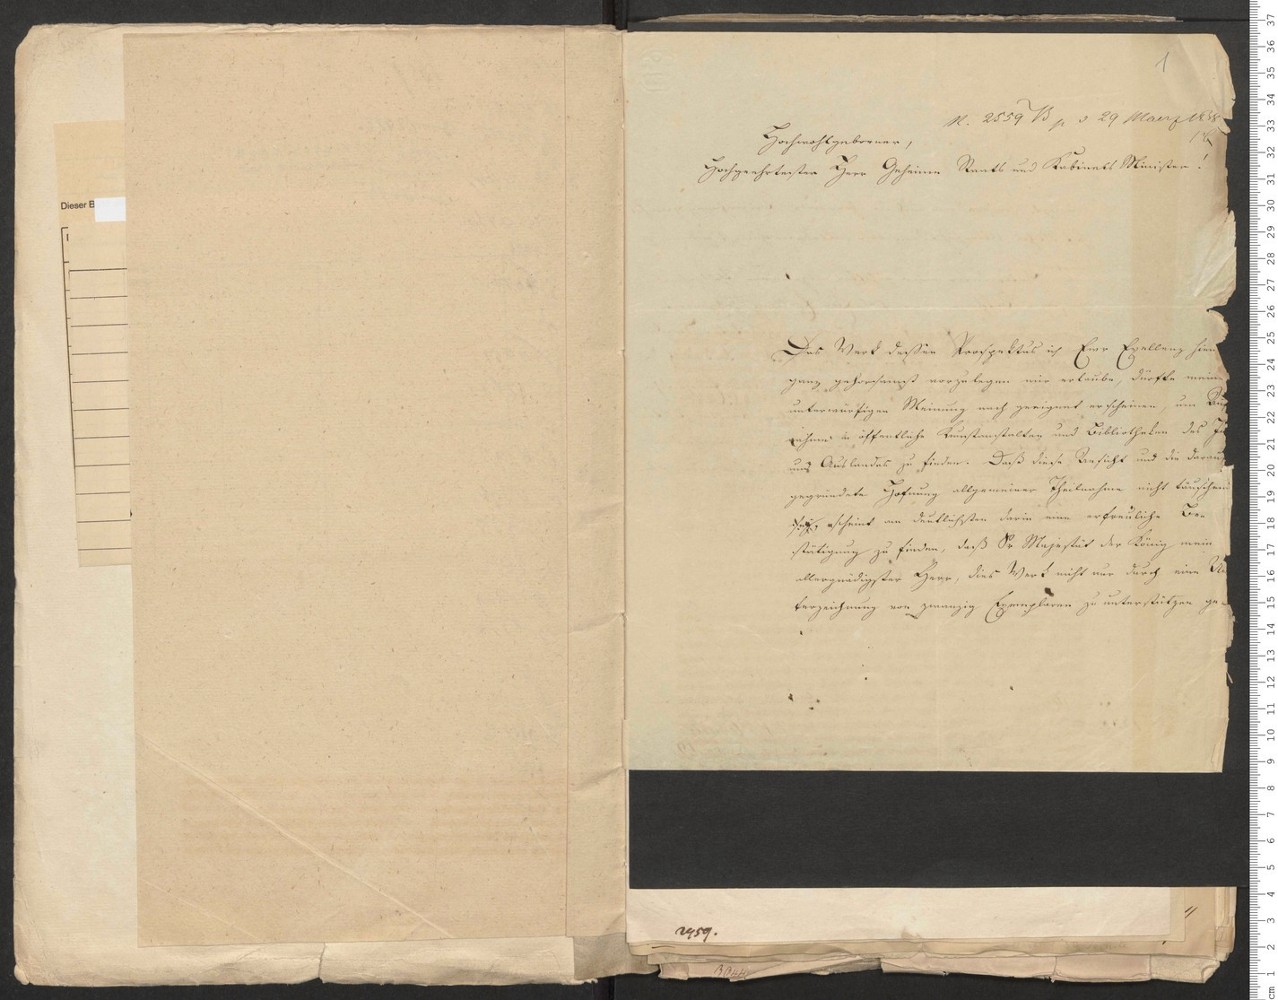 Dieser B
1
N. 2559 B p. d 29 Maerz 1838
Hochwohlgeborner,
Hochgeehrtester Herr Geheimer Staats und Kabinets Minister!
Das Werk dessen Prospektus ich Euer Excellenz hier
ganz gehorsamst vorzulegen mir erlaube, dürfte meiner
unterwürfigen Meinung nach geeignet erscheinen um
in öffentliche Kunstanstalten und Bibliotheken des
und Auslandes zu finden. Daß diese Ansicht und die darauf
gegründete Hofnung allgemeiner Theilnahme nicht täuschend
scheint am deutlichsten darin eine erfreuliche Be
stätigung zu finden, daß Sr Majestät der König mein
allergnädigster Herr, dies Werk nicht nur durch eine Un
terzeichnung von zwanzig Exemplaren zu unterstützen ge-
2459.